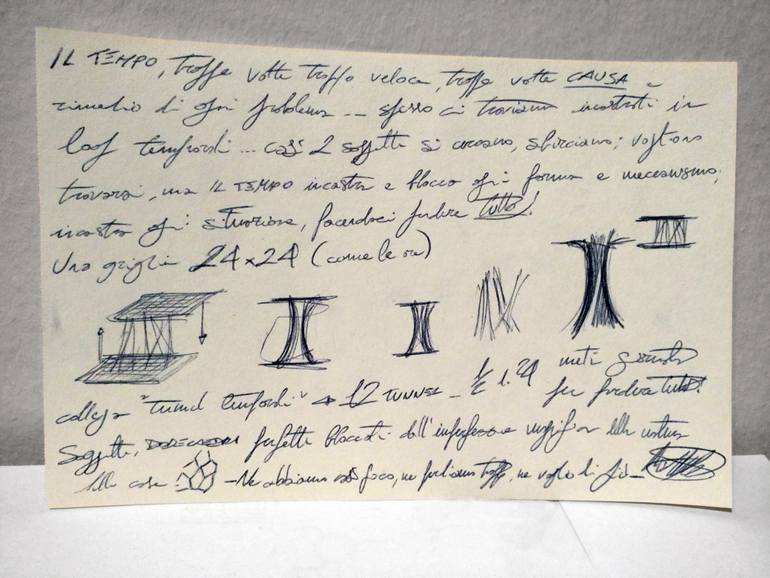 IL TEMPO, troppe volte troppo veloce, troppe volte CAUSA e
rimedio di ogni problema... spesso ci troviamo incastrati in
loop temporali... così 2 soggetti si cercano, sbirciano; vogliono
trovarsi, ma IL TEMPO incastra e blocca ogni forma e meccanismo,
incastra ogni situazione, facendoci perdere tutto!
Una griglia 24x24 (come le ore)
collega "tunnel temporali" 12 TUNNEL
metà
per perdere tutto.
Soggetti, perfetti bloccati dall'imperfezione delle
delle cose. - Ne abbiamo così poco, ne perdiamo troppo, ne voglio di più -